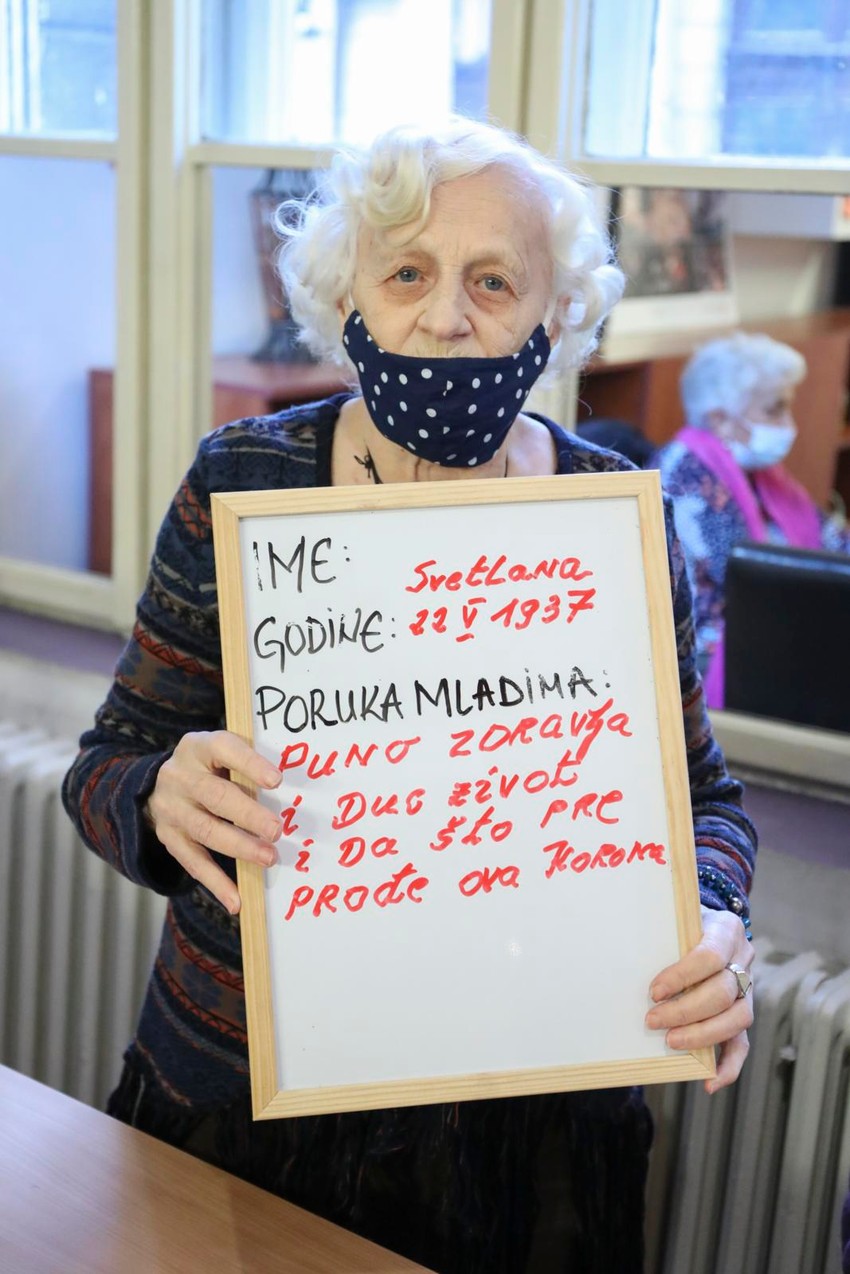 IME: SvetLana
GODINE: 22 V 1937
PORUKA MLADIMA:
PUNO ZDRAVLJA
i DUG život
i DA što PRE
PROđe ova KORONA